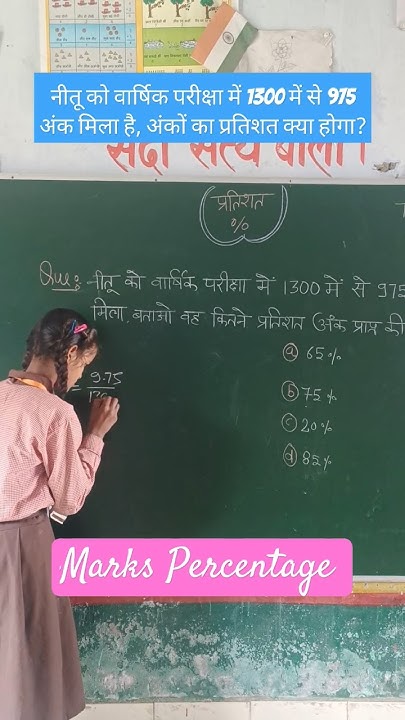 नीतू को वार्षिक परीक्षा में 1300 में से 975
अंक मिला है, अंकों का प्रतिशत क्या होगा?
सदा सत्य बोलो ।
प्रतिशत
%
Que: नीतू को वार्षिक परीक्षा में 1300 में से 975
मिला, बताओ वह कितने प्रतिशत अंक प्राप्त की
= 9.75
130
(a) 65%
(b) 75%
(c) 20%
(d) 85%
Marks Percentage